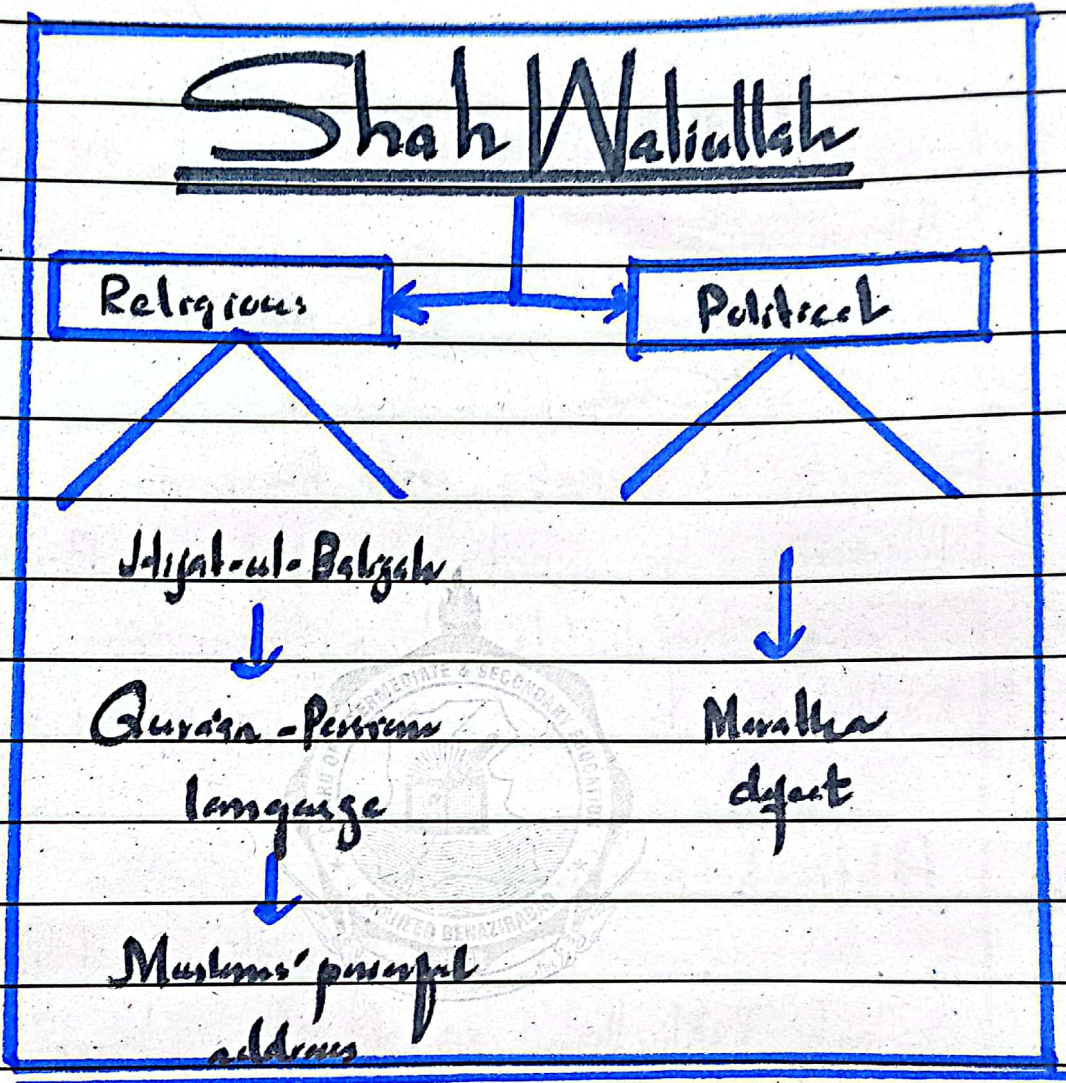 Shah Waliullah
Religious
Political
Hijat-ul-Baligah
Qura'an - Persian
language
Muslims' powerful
address
Maratha
defeat
BOARD OF INTERMEDIATE & SECONDARY EDUCATION
SHAHEED BENAZIRABAD